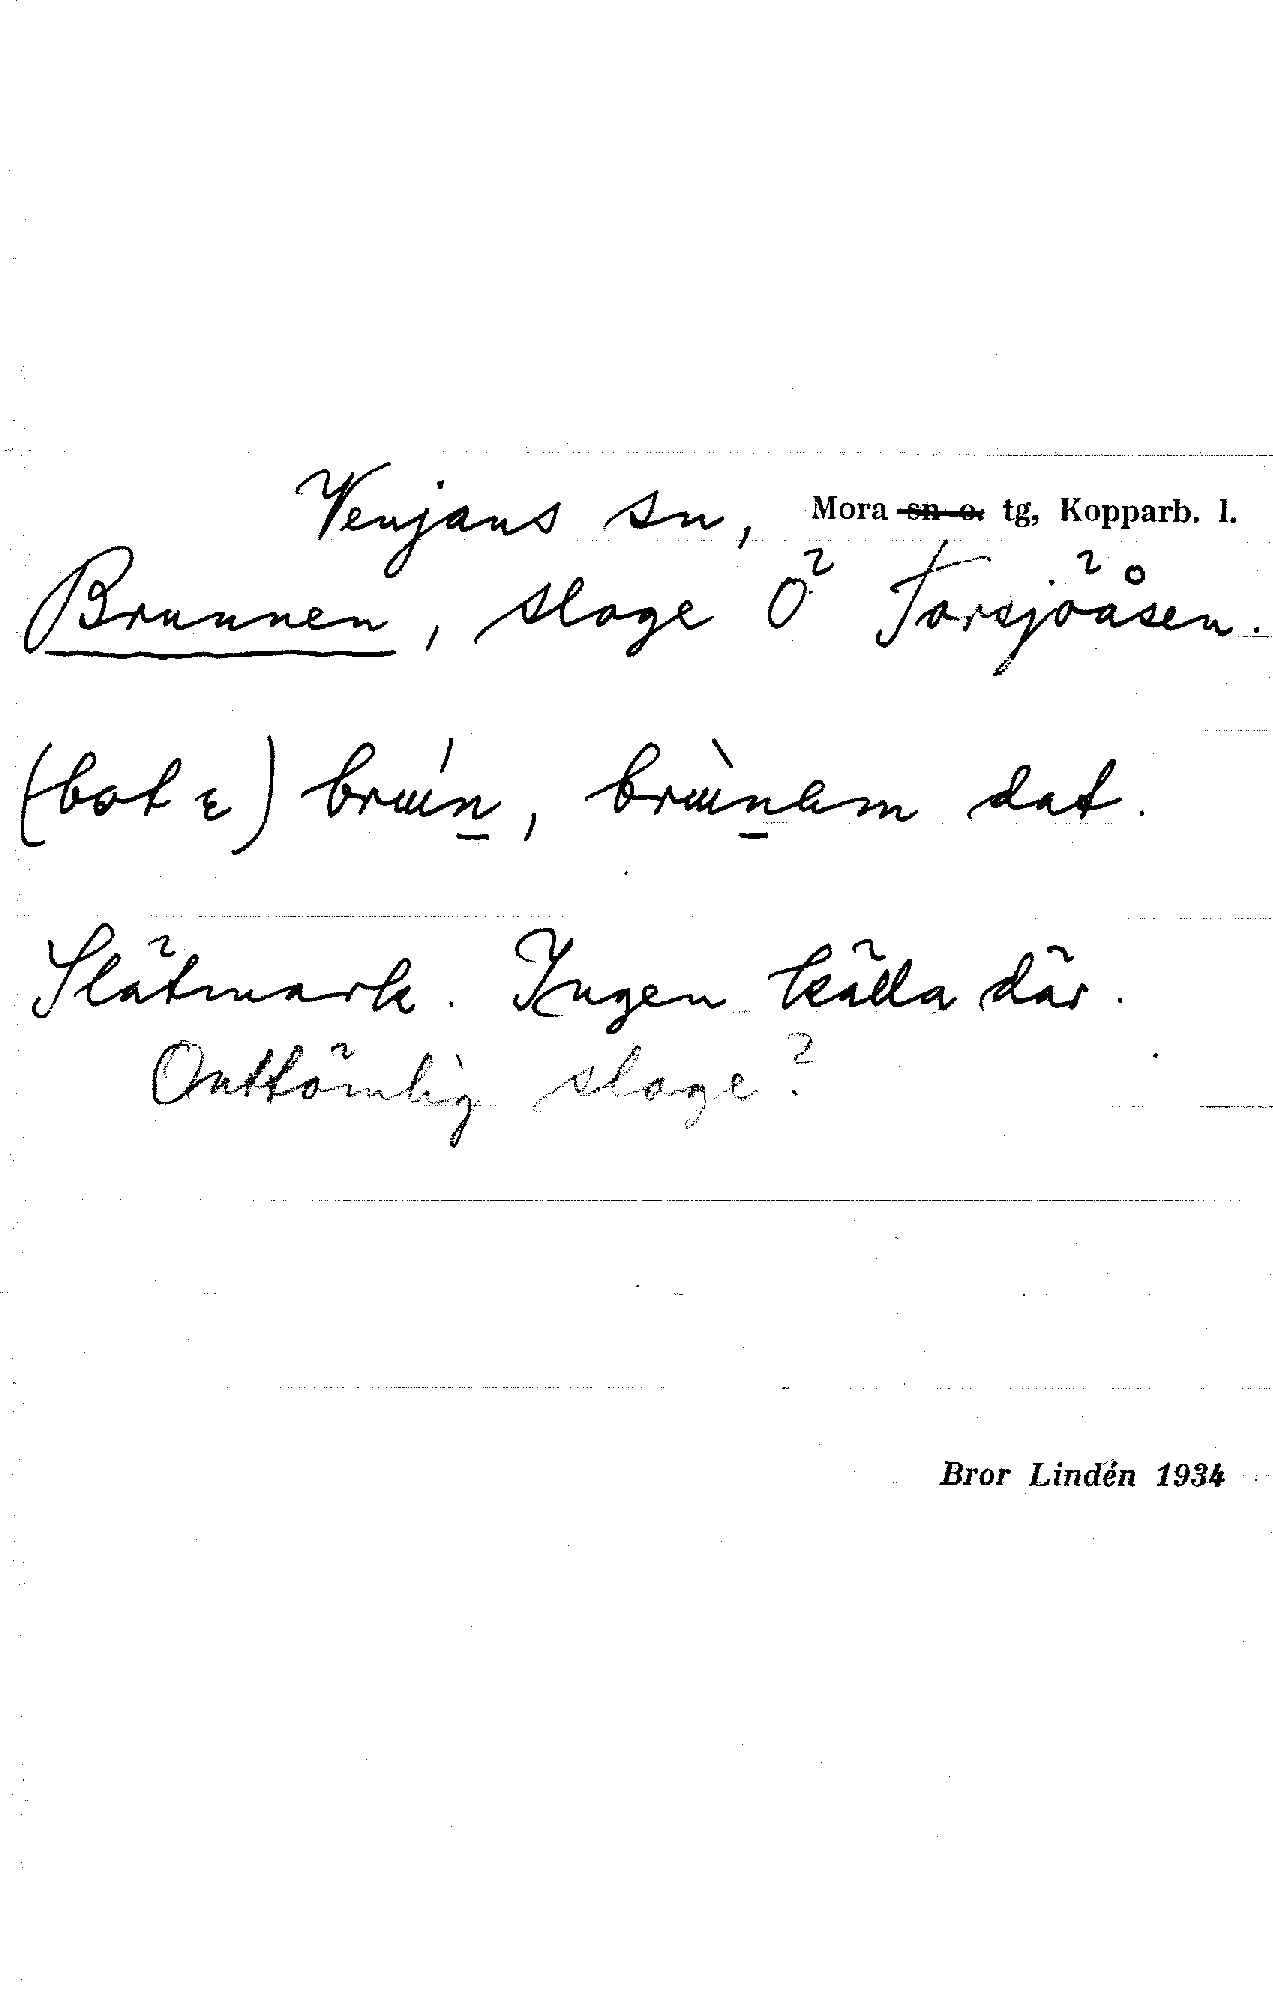 Venjans sn, Mora ~~sn o.~~ tg, Kopparb. l.
Brunnen, sloge Ö Torsjöåsen.
dat.
Slåtmark. Ingen källa där.
Outtömlig sloge?
Bror Lindén 1934